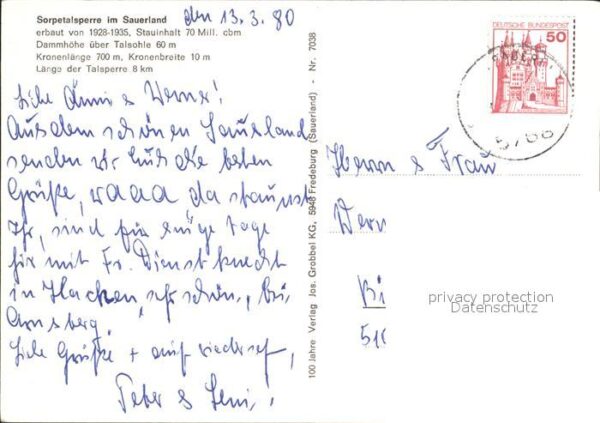 Sorpetalsperre im Sauerland
erbaut von 1928-1935, Stauinhalt 70 Mill. cbm
Dammhöhe über Talsohle 60 m
Kronenlänge 700 m, Kronenbreite 10 m
Länge der Talsperre 8 km
den 13.3.80
Liebe Änni & Werner!
Aus dem schönen Sauerland
senden wir Euch die besten
Grüße, waaa da staunst
Ihr, sind für einige Tage
hir mit Fr. Dienstknecht
in Hachen, sehr schön, bei
Arnsberg.
Liebe Grüße + auf wiedersehn,
Peter & Leni.
100 Jahre Verlag Jos. Grobbel KG, 5948 Fredeburg (Sauerland) - Nr. 7038
DEUTSCHE BUNDESPOST
50
5768
Herrn & Frau
Wern
Bi
511
privacy protection
Datenschutz